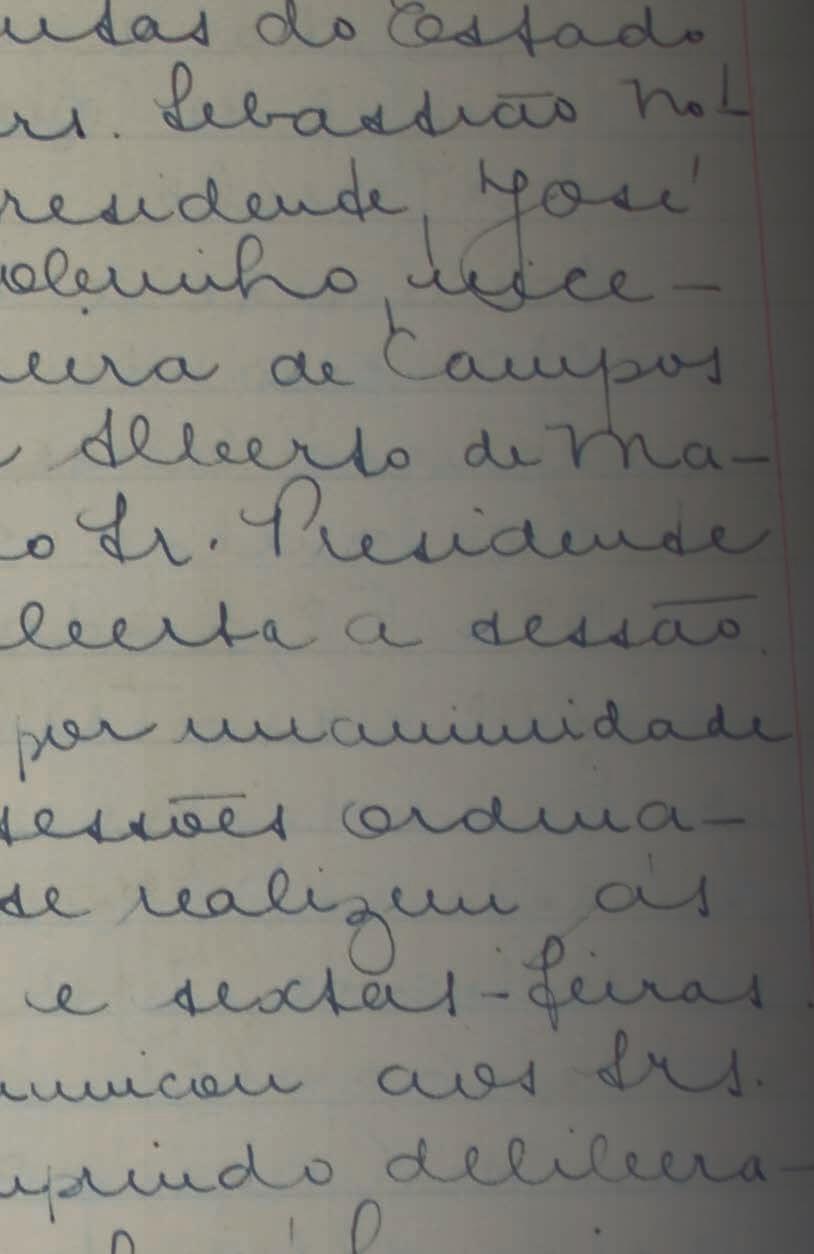 ntas do Estado
rs. Sebastião No-
residente, José
olininho, vice-
eira de Campos
Alberto de Ma-
o Sr. Presidente
berta a sessão.
por unanimidade
sessões ordina-
se realizem às
e sextas-feiras.
municou aos Srs.
mprindo delibera-